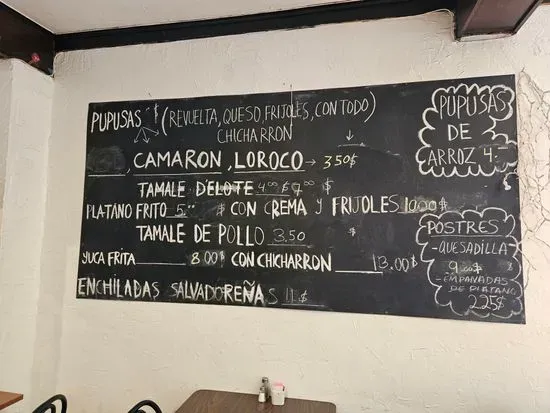 PUPUSAS $ (REVUELTA, QUESO, FRIJOLES, CON TODO)
CHICHARRON
, CAMARON, LOROCO → 3.50$
TAMALE D'ELOTE 4.00 $
PLATANO FRITO 5.00 $ CON CREMA Y FRIJOLES 10.00$
TAMALE DE POLLO 3.50 $
YUCA FRITA 8.00$ CON CHICHARRON 13.00$
ENCHILADAS SALVADOREÑAS 11$
PUPUSAS
DE
ARROZ 4.
POSTRES
-QUESADILLA
$
-EMPANADAS
DE PLATANO
2.25$